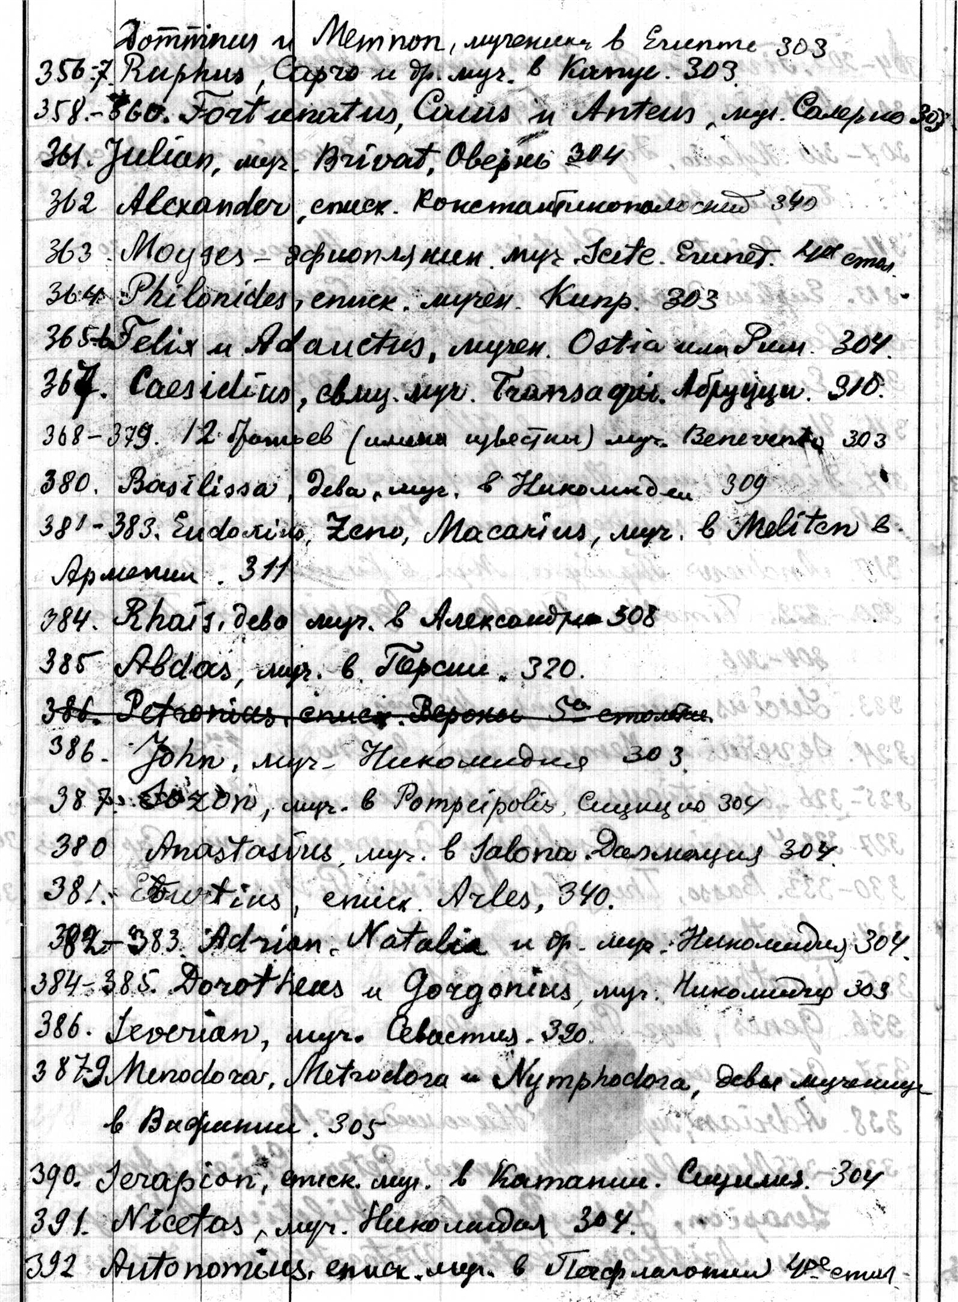 Domninus и Memnon, мученики в Египте 303
356-7 Ruphus, Carpo и др. муч. в Капуе. 303
358.-360. Fortunatus, Caius и Anteus, муч. Салерно 303
361. Julian, муч. Brivat, Овернь 304
362 Alexander, еписк. Константинопольский 340
363. Moyses - эфиоплянин муч. Scete. Египет. 4ое стол.
364. Philonides, еписк. мучен. Кипр. 303
365-6 Felix и Adauctus, мучен. Ostia или Рим. 304.
367. Caesidius, свщ. муч. Transaqui. Абруцци. 310.
368-379. 12 братьев (имена известны) муч. Benevento 303
380. Basilissa, дева, муч. в Никомидии 309
381-383. Eudoxius, Zeno, Macarius, муч. в Meliten в
Армении. 311
384. Rhais, дева муч. в Александрии 308
385 Abdas, муч. в Персии. 320.
386. Petronius, еписк. Вероны 5го столетия
386. John, муч- Никомидия 303.
387. Sozon, муч. в Pompeipolis, 304
380 Anastasius, муч. в Salona. Далмация 304.
381. еписк. Arles, 340.
382-383. Adrian, Natalia и др. муч. Никомидия, 304.
384-385. Dorotheus и Gorgonius, муч. Никомидия 303
386. Severian, муч. Севастия. 320.
387-9 Menodora, Metrodora и Nymphodora, девы мученицы
в Вифинии. 305
390. Serapion, еписк. муч. в Катании. Сицилия. 304
391. Nicetas, муч. Никомидия 304.
392 Autonomius, еписк. муч. в Пафлагонии 4ое стол-